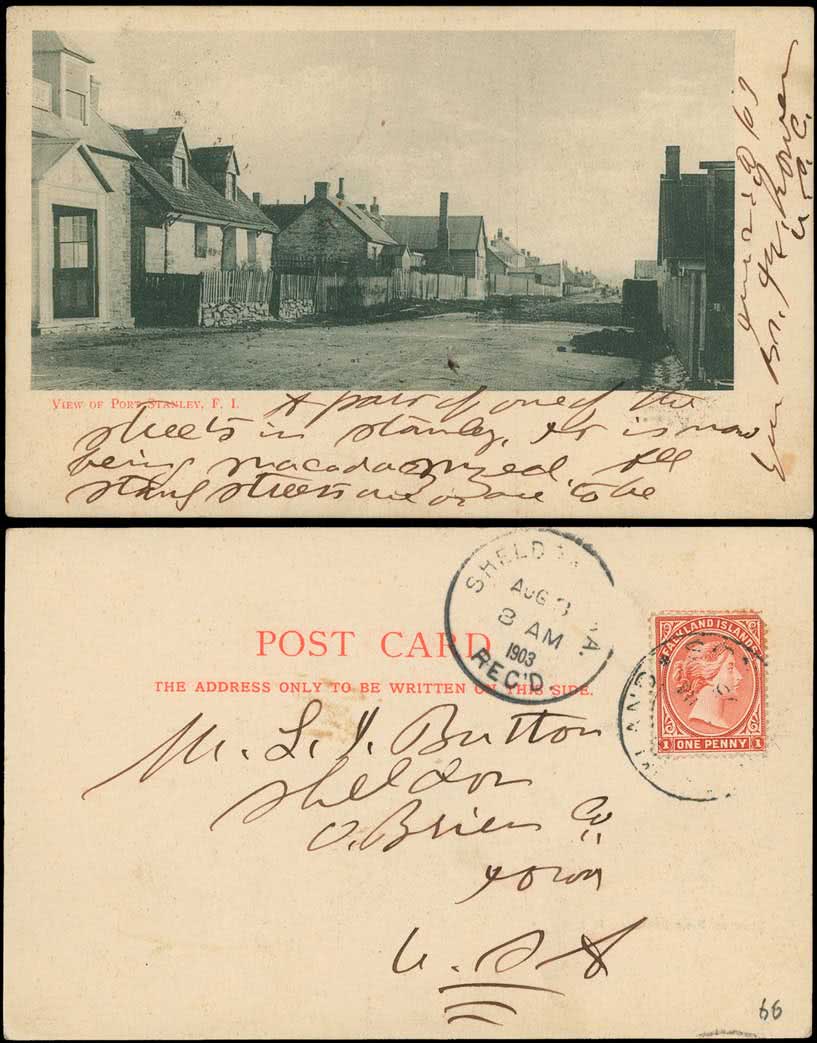 VIEW OF PORT STANLEY, F. I.
A part of one of the
streets in Stanley, It is now
being macadamyzed. All
streets are or are to be
June 2 1903
U.S.C.
SHELDON, IA.
AUG 3
8 AM
1903
REC'D.
POST CARD
THE ADDRESS ONLY TO BE WRITTEN ON THIS SIDE.
FALKLAND ISLANDS
1 ONE PENNY 1
Mr. L. J. Button
Sheldon
O.Brien Co
Iowa
U.S.A
66